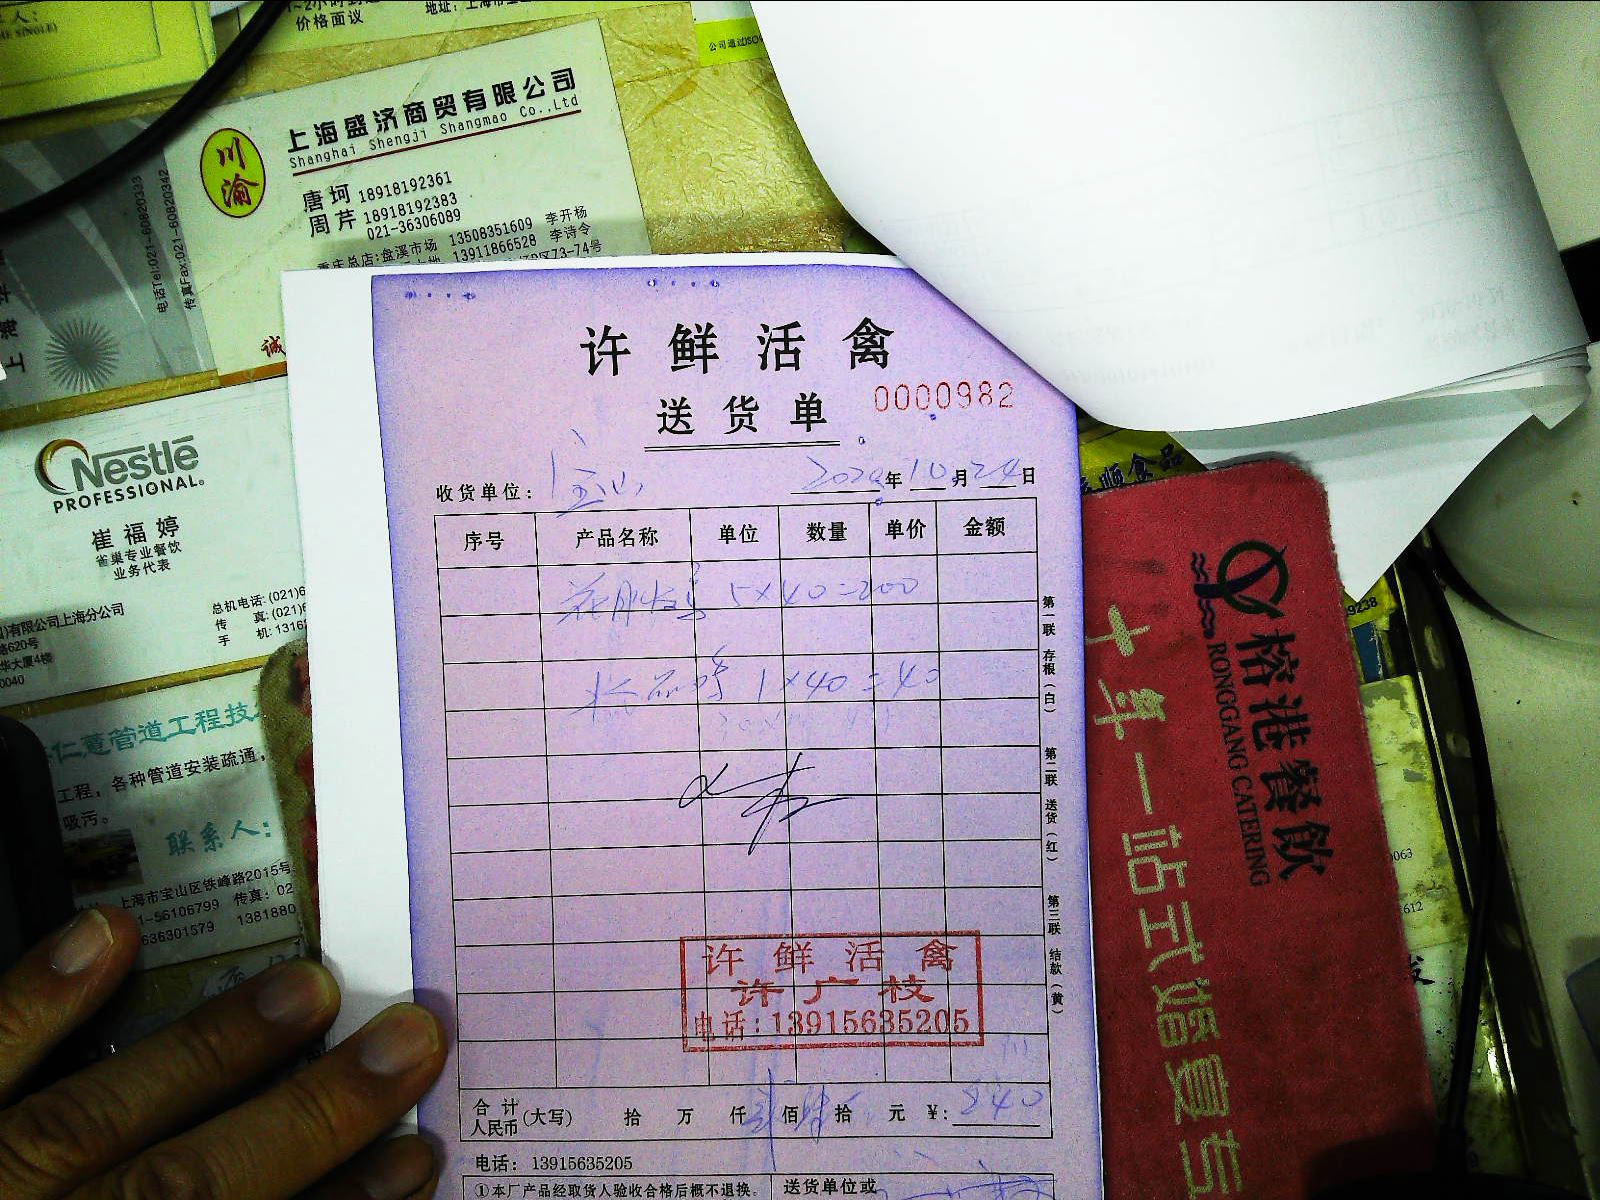 价格面议
公司通过ISO9
上海盛济商贸有限公司
Shanghai Shengji Shangmao Co.,Ltd
川渝
唐珂 18918192361
周芹 18918192383
021-36306089
重庆总店:盘溪市场 13508351609 李开杨
13911866528 李诗令
区73-74号
诚
电话Tel:021-60820333
传真Fax:021-60820342
上海
Nestlé
PROFESSIONAL.
崔福婷
雀巢专业餐饮
业务代表
有限公司上海分公司
路620号
华大厦4楼
0040
总机电话:(021)6
传 真:(021)6
手 机:1316
仁薏管道工程技
工程,各种管道安装疏通,
吸污。
联系人:
上海市宝山区铁峰路2015号
1-56106799 传真:02
636301579 1381880
许鲜活禽
送货单
0000982
收货单位: 宝山
2024年10月24日
序号 产品名称 单位 数量 单价 金额
5×40=200
1×40=40
第一联 存根(白)
第二联 送货(红)
第三联 结款(黄)
许鲜活禽
许广枝
电话:13915635205
合计人民币(大写) 拾 万 仟 佰 拾 元 ¥: 240
电话: 13915635205
①本厂产品经取货人验收合格后概不退换。
送货单位或
顺食品
榕港餐飲
RONGGANG CATERING
十年一站式婚宴专
9238
0063
612